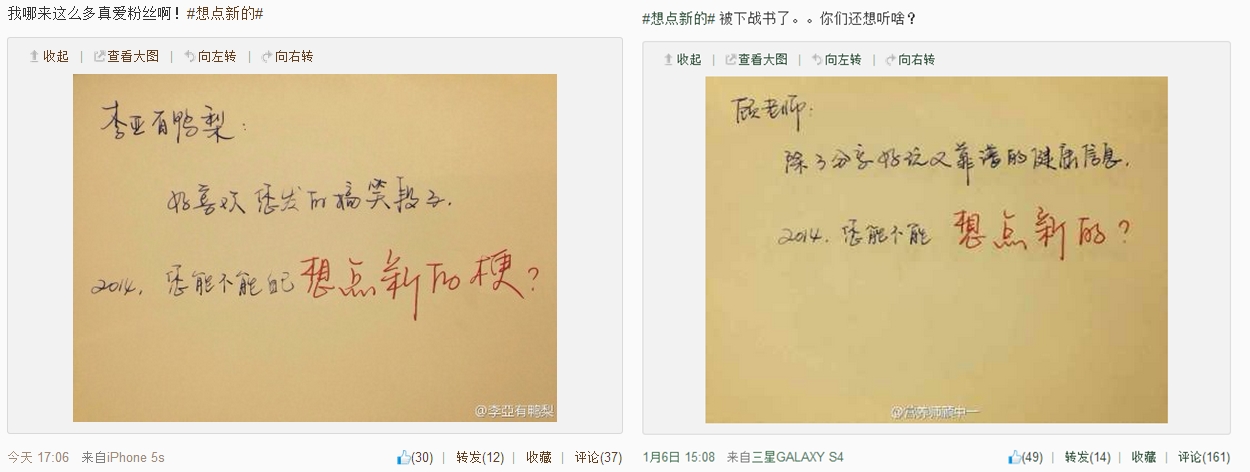 我哪来这么多真爱粉丝啊！#想点新的#
收起 | 查看大图 | 向左转 | 向右转
李亚有鸭梨：
好喜欢您发的搞笑段子.
2014, 您能不能自己想点新的梗?
@李亞有鸭梨
今天 17:06 来自iPhone 5s
(30) | 转发(12) | 收藏 | 评论(37)
#想点新的# 被下战书了。。你们还想听啥？
收起 | 查看大图 | 向左转 | 向右转
顾老师：
除了分享好玩又靠谱的健康信息.
2014. 您能不能 想点新的?
@营养师顾中一
1月6日 15:08 来自三星GALAXY S4
(49) | 转发(14) | 收藏 | 评论(161)